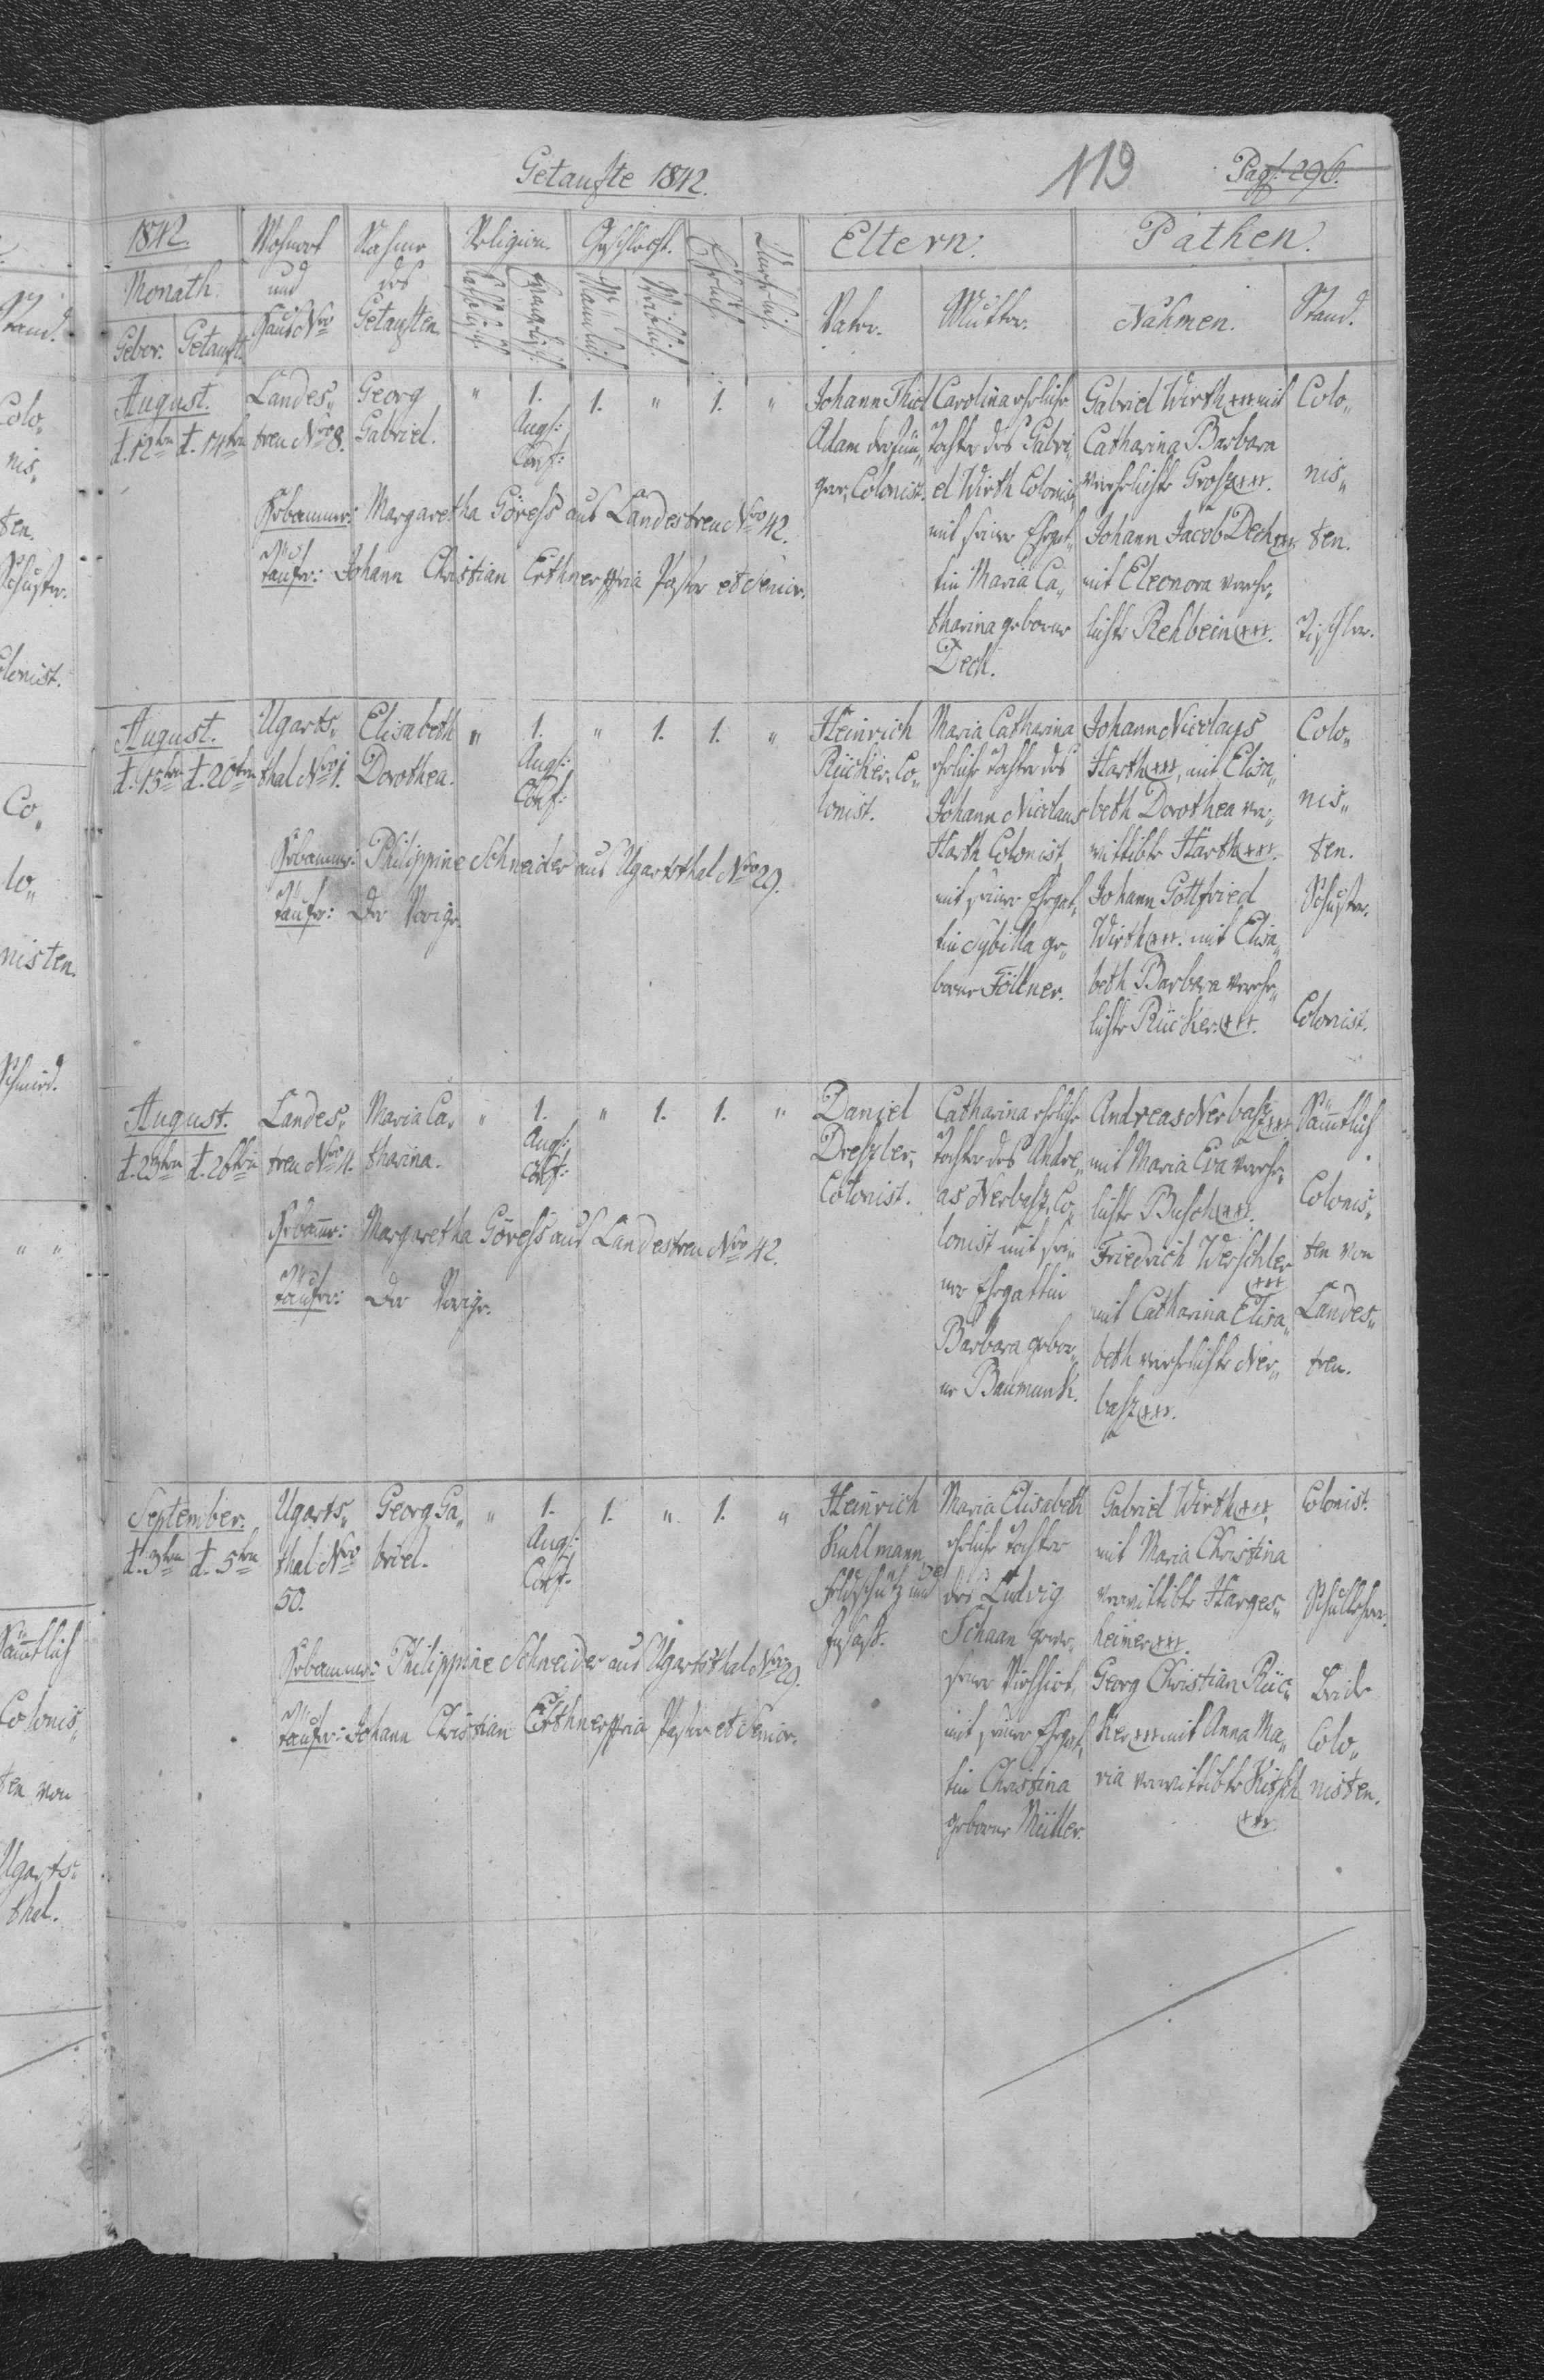 Getaufte 1842.
119
Pag: 296.
1842.
Monath.
Gebor. Getauft.
Wohnort
und
Haus Nro
Nahme
des
Getauften.
Religion.
Katholisch.
Evangelisch.
Geschlecht.
Männlich.
Weiblich.
Ehelich.
Unehelich.
Eltern.
Vater.
Mutter.
Pathen.
Nahmen.
Stand.
August.
d. 12ten d. 14ten
Landes„
treu Nro 8.
Georg
Gabriel.
" 1. 1. " 1. "
Augs:
Conf:
Johann
Adam der jün„
gere, Colonist.
Carolina eheliche
Tochter des Gabri„
el Wirth Colonist,
mit seiner Ehegat„
tin Maria Ca„
tharina geborne
Dech.
Gabriel Wirth xxx mit
Catharina Barbara
verehelichte Grosz xxx.
Johann Jacob Dech xxx
mit Eleonora verehe„
lichte Rehbein xxx.
Colo„
nis„
ten.
Tischler.
Hebamme: Margaretha Göress aus Landestreu Nro 42.
Taufer: Johann Christian Erthner mpria Pastor et Senior.
August.
d. 15ten d. 20ten
Ugarts„
thal Nro 1.
Elisabeth
Dorothea.
" 1. " 1. 1. "
Augs:
Conf:
Heinrich
Rücker, Co„
lonist.
Maria Catharina
eheliche Tochter des
Johann Nicolaus
Harth Colonist,
mit seiner Ehegat„
tin Sybilla ge„
borne Föllner.
Johann Nicolaus
Harth xxx, mit Elisa„
beth Dorothea ver„
wittibte Harth xxx.
Johann Gottfried
Wirth xxx. mit Elisa„
beth Barbara verehe„
lichte Rücker. xxx.
Colo„
nis„
ten.
Schuster.
Colonist.
Hebamme: Philippine Schneider aus Ugartsthal Nro 29.
Taufer: Der Vorige.
August.
d. 23ten d. 26ten
Landes„
treu Nro 4.
Maria Ca„
tharina.
" 1. " 1. 1. "
Augs:
Conf:
Daniel
Dreszler,
Colonist.
Catharina eheliche
Tochter des Andre„
as Nerbasz, Co„
lonist mit sei„
ner Ehegattin
Barbara gebor„
ne Baumunk.
Andreas Nerbasz xxx
mit Maria Eva verehe„
lichte Busch xxx.
Friedrich Werschler
xxx
mit Catharina Elisa„
beth verehelichte Ner„
basz xxx.
Sämtlich
Colonis„
ten von
Landes„
treu.
Hebamme: Margretha Göress aus Landestreu Nro 42.
Taufer: Der Vorige.
September.
d. 3ten d. 5ten
Ugarts„
thal Nro
50.
Georg Ga„
briel.
" 1. 1. " 1. "
Augs:
Conf.
Heinrich
Kuhlmann,
Feldschütz und
Insass.
Maria Elisabeth
eheliche Tochter
des Ludwig
Schaan gewe„
sener Viehhirt,
mit seiner Ehegat„
tin Christina
geborne Müller.
Gabriel Wirth xxx,
mit Maria Christina
verwittibte Harges„
heimer xxx.
Georg Christian Rüc„
ker xxx mit Anna Ma„
ria verwittibte Kitsch
xxx
Colonist.
Schullehrer.
Beide
Colo„
nisten.
Hebamme: Philippine Schneider aus Ugartsthal Nro 29.
Taufer: Johann Christian Erthner mpria Pastor et Senior.